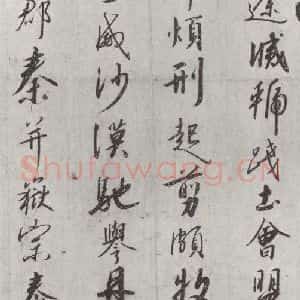 途滅虢踐土會盟
煩刑起翦頗牧
威沙漠馳譽丹
郡秦并嶽宗泰
Shufawang.Cn